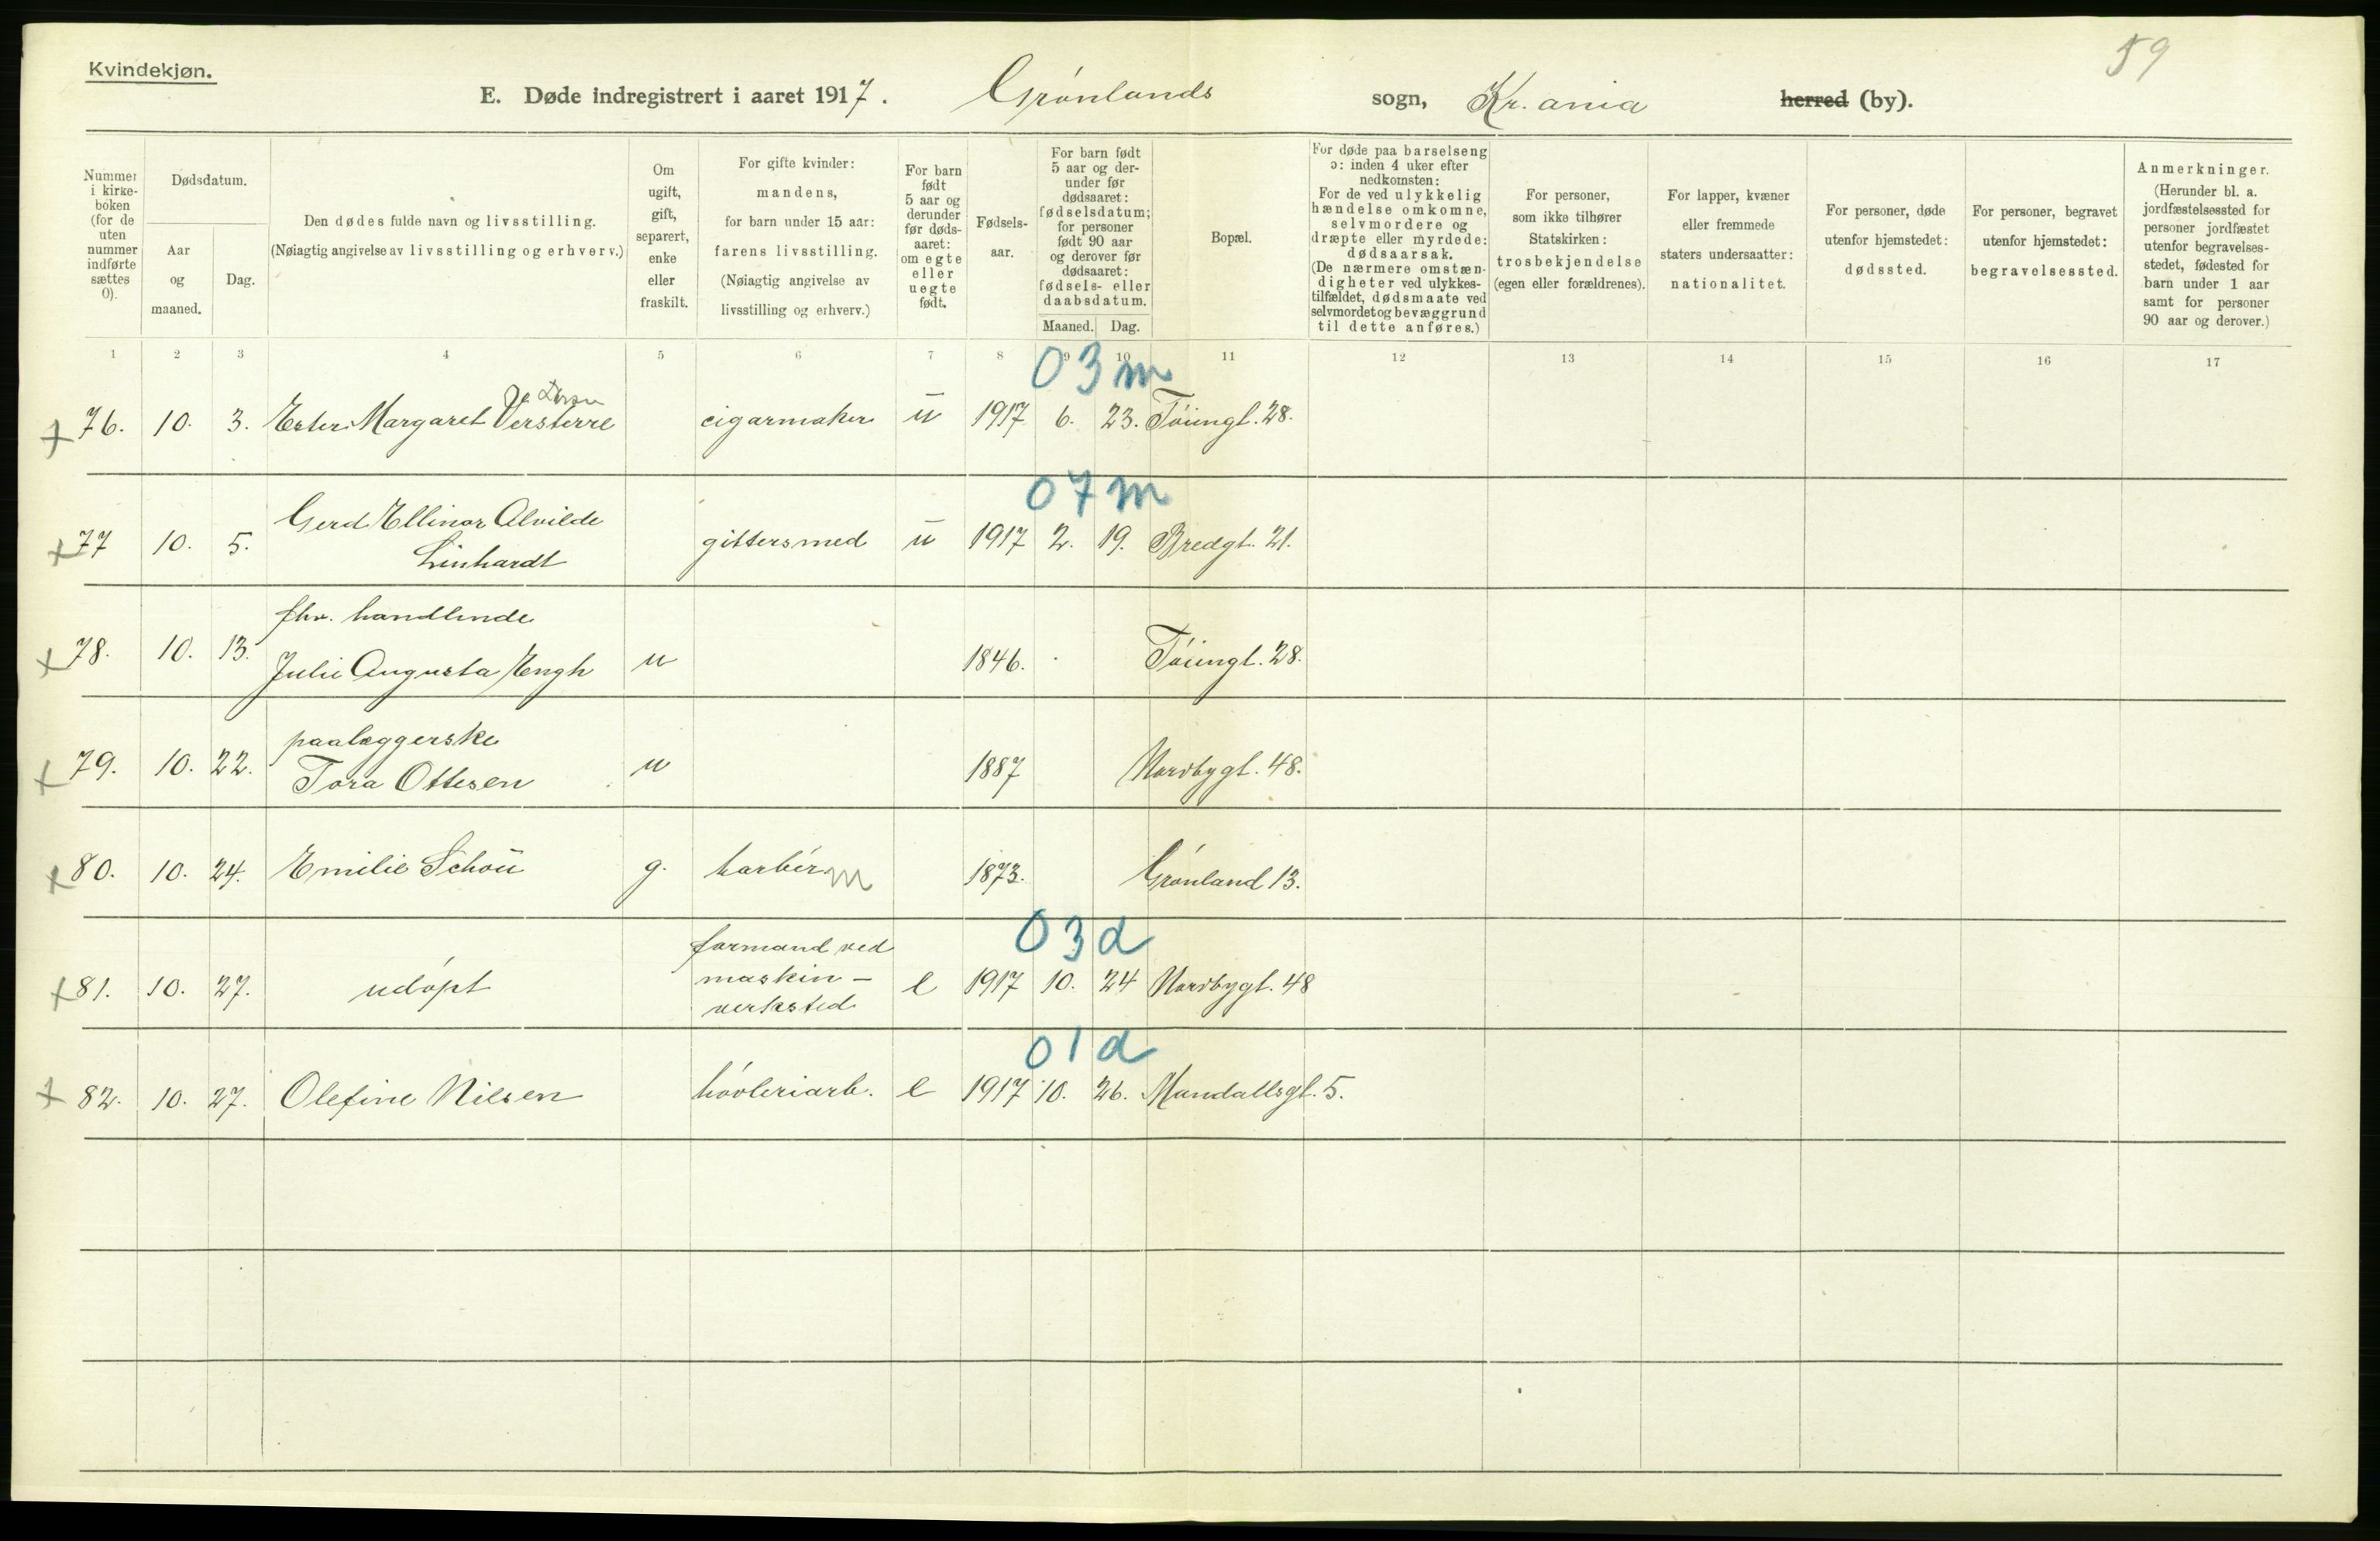 Kvindekjøn.
59
E. Døde indregistrert i aaret 1917. Grønlands sogn, Kr.ania herred (by).
Nummer i kirke-boken (for de uten nummer indførte sættes 0).
Dødsdatum.
Aar og maaned.
Dag.
Den dødes fulde navn og livsstilling.
(Nøiagtig angivelse av livsstilling og erhverv.)
Om ugift, gift, separert, enke eller fraskilt.
For gifte kvinder: mandens, for barn under 15 aar: farens livsstilling. (Nøiagtig angivelse av livsstilling og erhverv.)
For barn født 5 aar og derunder før dødsaaret: om egte eller uegte født.
Fødselsaar.
For barn født 5 aar og derunder før dødsaaret: fødselsdatum; for personer født 90 aar og derover før dødsaaret: fødsels- eller daabsdatum.
Maaned. Dag.
Bopæl.
For døde paa barselseng ɔ: inden 4 uker efter nedkomsten: For de ved ulykkelig hændelse omkomne, selvmordere og dræpte eller myrdede: dødsaarsak. (De nærmere omstændigheter ved ulykkestilfældet, dødsmaate ved selvmordet og bevæggrund til dette anføres.)
For personer, som ikke tilhører Statskirken: trosbekjendelse (egen eller forældrenes).
For lapper, kvæner eller fremmede staters undersaatter: nationalitet.
For personer, døde utenfor hjemstedet: dødssted.
For personer, begravet utenfor hjemstedet: begravelsessted.
Anmerkninger. (Herunder bl. a. jordfæstelsessted for personer jordfæstet utenfor begravelsesstedet, fødested for barn under 1 aar samt for personer 90 aar og derover.)
1 2 3 4 5 6 7 8 9 10 11 12 13 14 15 16 17
03 m
76. 10. 3. Ester Margaret Versterre cigarmaker u 1917 6. 23. Tøiengt. 28.
07 m
77 10. 5. Gerd Ellinor Alvilde Linhardt gittersmed u 1917 2. 19. Bredgt. 21.
fhv. handlende
78. 10. 13. Julie Augusta Engh u 1846. Tøiengt. 28.
paalæggerske
79. 10. 22. Tora Ottesen u 1887 Nordbygt. 48.
80. 10. 24. Emilie Schou g. barbér m 1873. Grønland 13.
03 d
81. 10. 27. udøpt formand ved maskin-verksted e 1917 10. 24 Nordbygt. 48
01 d
82. 10. 27. Olefine Nilsen høvleriarb. e 1917 10. 26. Mandallsgt. 5.